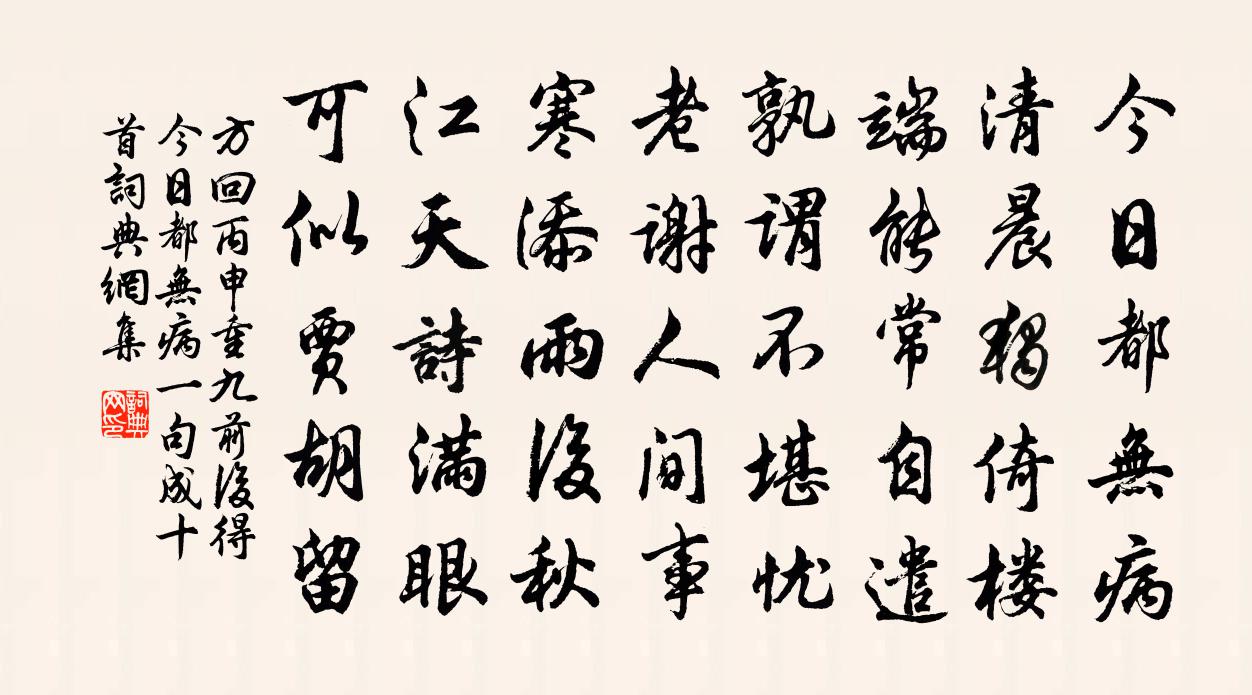 今日都無病
清晨獨倚楼
端能常自遣
孰謂不堪忧
老謝人间事
寒添雨後秋
江天詩满眼
可似賈胡留
方回丙申重九前後得
今日都無病一句成十
首詞典網集
詞典网印